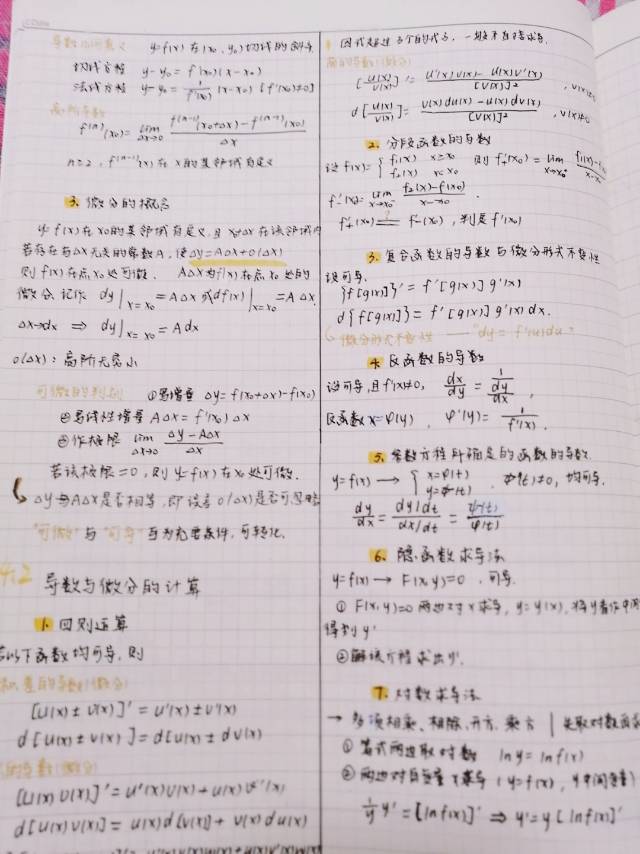 导数几何意义 y=f(x)在(x₀,y₀)切线的斜率
切线方程 y-y₀=f'(x₀)(x-x₀)
法线方程 y-y₀=1/f'(x₀) (x-x₀) [f'(x₀)≠0]
高阶导数
f⁽ⁿ⁾(x₀)=lim Δx→0 [f⁽ⁿ⁻¹⁾(x₀+Δx)-f⁽ⁿ⁻¹⁾(x₀)]/Δx
n≥2, f⁽ⁿ⁻¹⁾(x)在x的某邻域有定义
3. 微分的概念
y=f(x)在x₀的某邻域有定义,且x₀+Δx在该邻域内
若存在与Δx无关的常数A,使Δy=AΔx+o(Δx)
则f(x)在点x₀处可微. AΔx为f(x)在点x₀处的
微分.记作 dy|x=x₀ =AΔx 或 df(x)|x=x₀ =AΔx.
Δx→dx ⇒ dy|x=x₀ =Adx
o(Δx):高阶无穷小
可微的判别 ①写增量 Δy=f(x₀+Δx)-f(x₀)
②写线性增量 AΔx=f'(x₀)Δx
③作极限 lim Δx→0 (Δy-AΔx)/Δx
若该极限=0,则y=f(x)在x₀处可微.
Δy与AΔx是否相等,即误差o(Δx)是否可忽略
"可微"与"可导"互为充要条件,可转化.
4.2 导数与微分的计算
1. 四则运算
若以下函数均可导,则
和差的导数(微分)
[u(x)±v(x)]'=u'(x)±v'(x)
d[u(x)±v(x)]=d[u(x)±dv(x)
积的导数(微分)
[u(x)v(x)]'=u'(x)v(x)+u(x)v'(x)
d[u(x)v(x)]=u(x)d[v(x)]+v(x)du(x)
因式超过3个的代子,一般不直接求导.
商的导数(微分)
[u(x)/v(x)]'=[u'(x)v(x)-u(x)v'(x)]/[v(x)]², v(x)≠0
d[u(x)/v(x)]=[v(x)du(x)-u(x)dv(x)]/[v(x)]², v(x)≠0
2. 分段函数的导数
设f(x)={f₁(x) x≥x₀ f₂(x) x<x₀ 则f'₊(x₀)=lim x→x₀⁺
f'₋(x)=lim x→x₀⁻ [f₂(x)-f(x₀)]/(x-x₀).
f'₊(x₀)=f'₋(x₀),判定f'(x₀)
3. 复合函数的导数与微分形式不变性
设可导.
{f[g(x)]}'=f'[g(x)]g'(x)
d{f[g(x)]}=f'[g(x)]g'(x)dx.
微分形式不变性 —— "dy=f'(u)du"
4. 反函数的导数
设可导,且f'(x)≠0, dx/dy=1/(dy/dx),
反函数x=φ(y), φ'(y)=1/f'(x).
5. 参数方程所确定的函数的导数.
y=f(x)→{x=φ(t) y=ψ(t), φ'(t)≠0,均可导.
dy/dx=(dy/dt)/(dx/dt)=ψ'(t)/φ'(t)
6. 隐函数求导法
y=f(x)→F(x,y)=0,可导.
①F(x,y)=0两边对x求导,y=y(x),将y看作中间
得到y'
②解该方程求出y'.
7. 对数求导法
→多项相乘、相除、开方、乘方 | 先取对数再求
①等式两边取对数 lny=lnf(x)
②两边对自变量x求导(y=f(x),y中间变量)
1/y y'=[lnf(x)]' ⇒ y'=y[lnf(x)]'